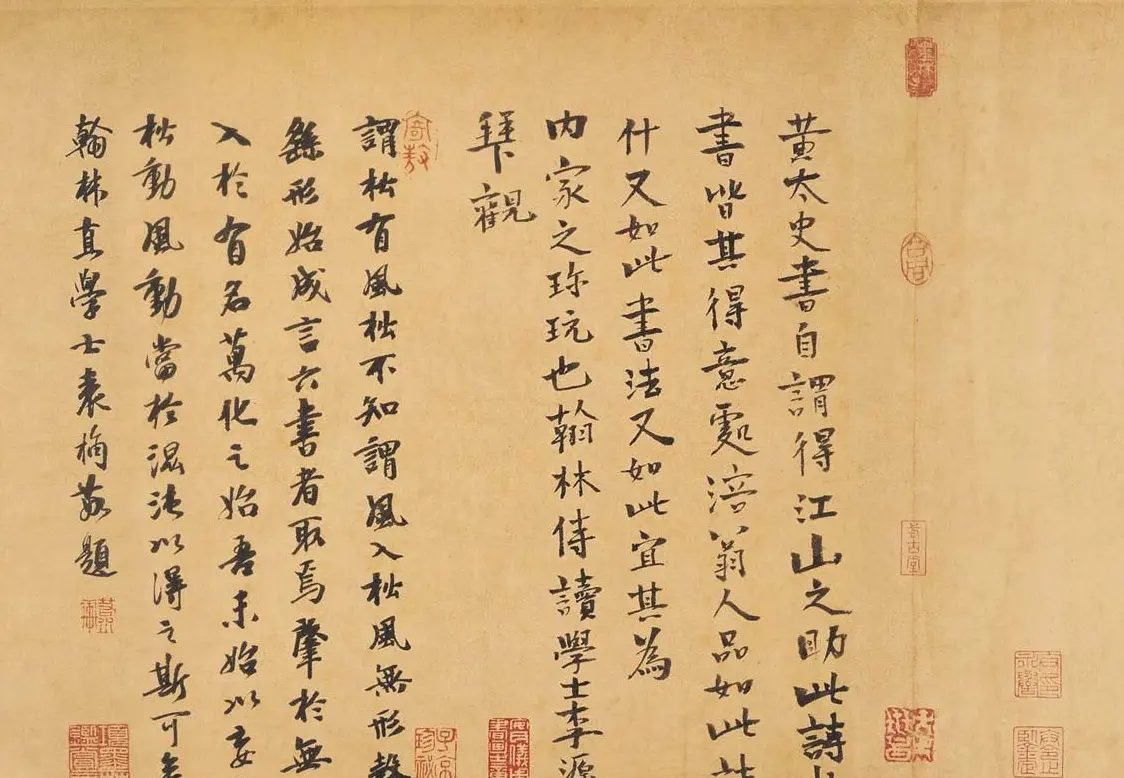 黃太史書自謂得江山之助此詩
書皆其得意處涪翁人品如此
什又如此書法又如此宜其為
內家之珎玩也翰林侍讀學士李源
拜觀
謂松有風松不知謂風入松風無形聲
繇形始成言六書者取焉肇於無
入於有名萬化之始吾未始以妄
松動風動當於混沌以得之斯可
翰林直學士袁桷敬題